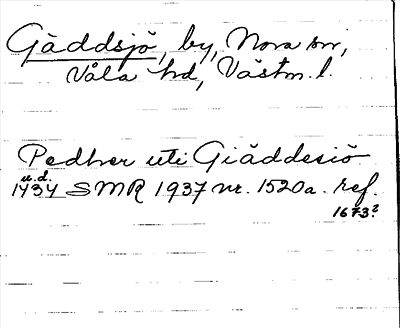 Gäddsjö, by, Nora sn,
Våla hd, Västm. l.
Pedher uti Giäddesiö
u.d.
1434 SMR 1937 nr. 1520a. ref.
1673?